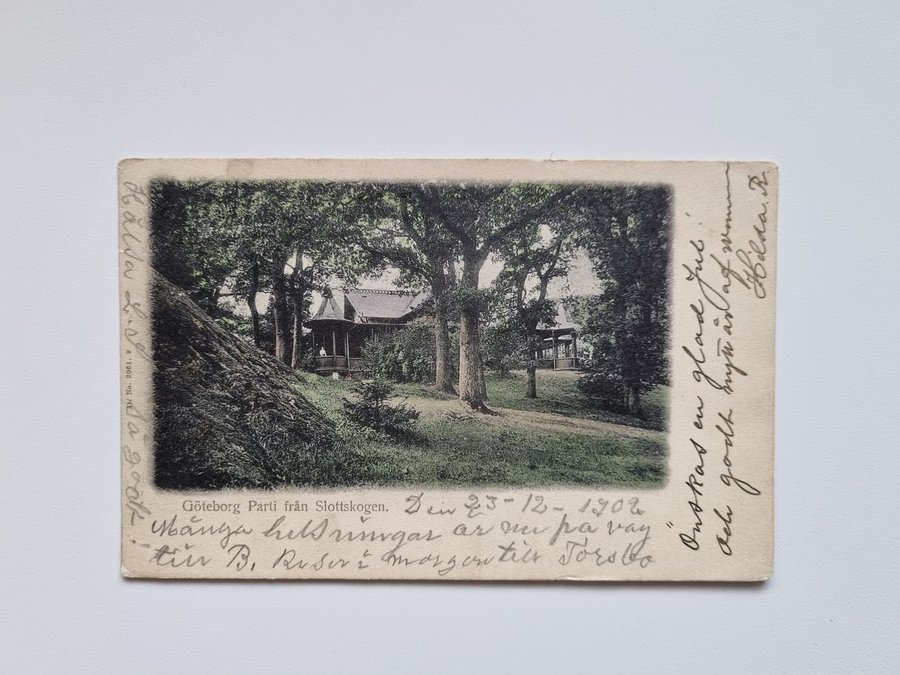 Göteborg Parti från Slottskogen.
Den 23-12-1902
Många helsningar är nu på väg
till B. i morgon till Torsbo
Önskas en glad Jul
och godt nytt år af
Hilda. R.